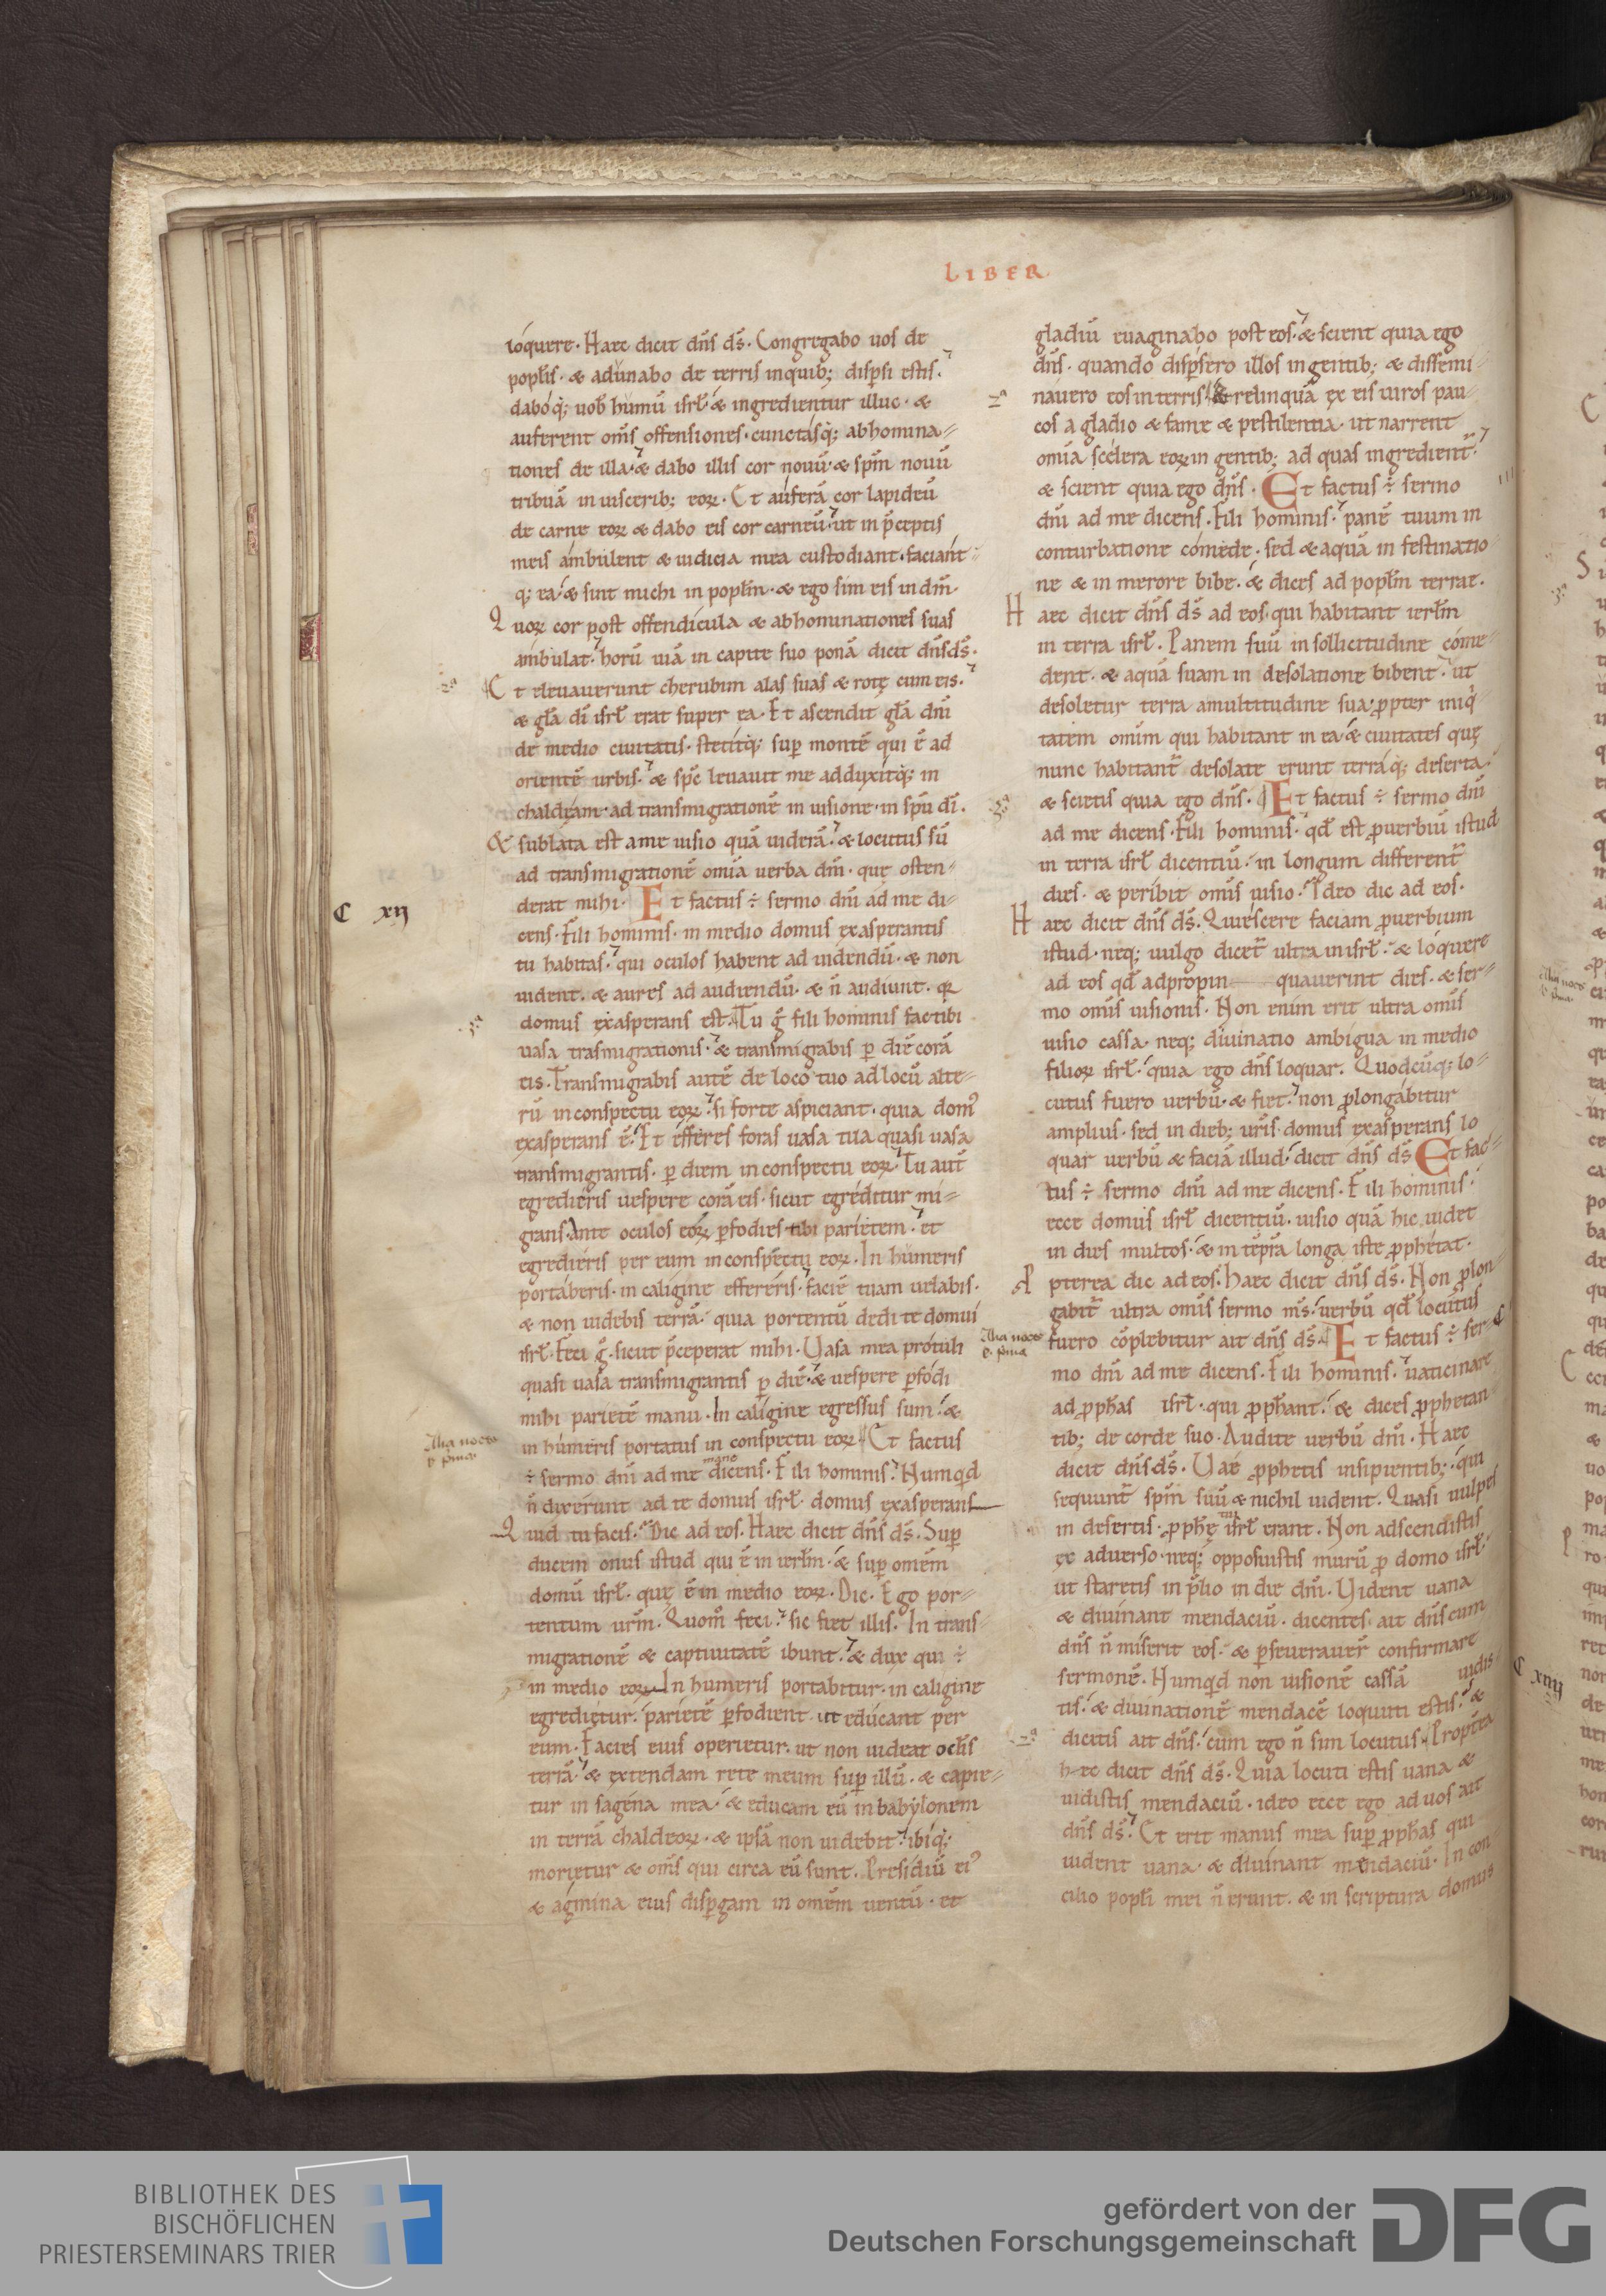 LIBER
ióquere. Haec dicit dn̄s ds̄. Congregabo uos de
popl̄is. & adunabo de terris in quib; disp̄si estis.
dabóq; uob̄ humū isrl̄. & ingredientur illuc. &
auferent om̄s offensiones. cunctásq; abhomina-
tiones de illa. & dabo illis cor nouū. & sp̄m nouū
tribuā in uiscerib; eoꝝ. Et auferā cor lapideū
de carne eoꝝ & dabo eis cor carneū. ut in p̄ceptis
meis ambulent & iudicia mea custodiant. faciánt-
q; ea. & sint michi in popl̄m. & ego sim eis in dm̄.
Quoꝝ cor post offendicula & abhominationes suas
ambulat. horū uiā in capite suo ponā dicit dn̄s ds̄.
Et eleuauerunt cherubim alas suas & rotę cum eis.
& gl̄a dī isrl̄ erat super ea. Et ascendit gl̄a dn̄i
de medio ciuitatis. stetitq; sup̄ montē qui ē ad
orientē urbis. & sp̄c leuauit me adduxitq; in
chaldęam. ad transmigrationē in uisione. in sp̄u dī.
& sublata est a me uisio quā uiderā. & locutus sū
ad transmigrationē omia uerba dn̄i. quę osten-
derat mihi. Et factus ÷ sermo dn̄i ad me di-
cens. Fili hominis. in medio domus exasperantis
tu habitas. qui oculos habent ad uidendū. & non
uident. & aures ad audiendū. & n̄ audiunt. qr
domus exasperans est. Tu g̊ fili hominis fac tibi
uasa trasmigrationis. & transmigrabis p̄ diē corā
eis. Transmigrabis autē de loco tuo ad locū alte-
rū in conspectu eoꝝ. si forte aspiciant. quia dom᾽
exasperans ē. Et efferes foras uasa tua quasi uasa
transmigrantis. p̄ diem in conspectu eoꝝ. Tu aut̄
egredieris uespere corā eis. sicut egreditur mi-
grans. Ante oculos eoꝝ p̄fodies tibi parietem. et
egredieris per eum in conspectu eoꝝ. In humeris
portaberis. in caligine effereris. faciē tuam uelabis.
& non uidebis terrā. quia portentū dedi te domui
isrl̄. Feci g̊. sicut p̄ceperat mihi. Uasa mea protuli
quasi uasa transmigrantis p̄ diē. & uespere p̄fodi
mihi parietē manu. In caligine egressus sum. &
in humeris portatus in conspectu eoꝝ. Et factus
÷ sermo dn̄i ad me mane dicens. Fili hominis. Numqd
n̄ dixerunt ad te domus isrl̄. domus exasperans
Quid tu facis. Dic ad eos. Haec dicit dn̄s ds̄. Sup̄
ducem onus istud qui ē in ierl̄m. & sup̄ omēm
domū isrl̄. quę ē in medio eoꝝ. Dic. Ego por-
tentum ur̄m. Quom̊ feci. sic fiet illis. In trans-
migrationē & captiuitatē ibunt. & dux qui ÷
in medio eoꝝ. In humeris portabitur. in caligine
egredietur. parietē p̄fodient ut educant per
eum. Facies eius operietur. ut non uideat oclis
terrā. & extendam rete meum sup̄ illū. & capie-
tur in sagena mea. & educam eū in babylonem
in terrā chaldeoꝝ. & ipsā non uidebit. ibiq;
morietur & om̄s qui circa eū sunt. Presidiū ei᾽
& agmina eius disp̄gam in omēm uentū. et
gladiū euaginabo post eos. & scient quia ego
dn̄s. quando disp̄sero illos in gentib; & dissemi-
nauero eos in terris. & relinquā ex eis uiros pau-
cos a gladio & fame & pestilentia. ut narrent
omia scelera eoꝝ in gentib; ad quas ingredient̄.
& scient quia ego dn̄s. Et factus ÷ sermo
dn̄i ad me dicens. Fili hominis. panē tuum in
conturbatione comede. sed & aquā in festinatio
ne & in merore bibe. & dices ad popl̄m terrae.
Haec dicit dn̄s ds̄ ad eos. qui habitant ierl̄m
in terra isrl̄. Panem suū in sollicitudine come-
dent. & aquā suam in desolatione bibent. ut
desoletur terra a multitudine sua. ꝓpter iniq̄-
tatem omiūm qui habitant in ea. & ciuitates quę
nunc habitant̄ desolate erunt terráq; deserta.
& scietis quia ego dn̄s. Et factus ÷ sermo dn̄i
ad me dicens. Fili hominis. qd̄ est ꝓuerbiū istud
in terra isrl̄ dicentiū. in longum different̄
dies. & peribit omīs uisio. Ideo dic ad eos.
Haec dicit dn̄s ds̄. Quiescere faciam ꝓuerbium
istud. neq; uulgo dicet̄ ultra in isrl̄. & loquere
ad eos qd̄ adpropin quauerint dies. & ser-
mo omīs uisionis. Non enim erit ultra omīs
uisio cassa. neq; diuinatio ambigua in medio
filioꝝ isrl̄. quia ego dn̄s loquar. Quodcūq; lo-
cutus fuero uerbū. & fiet. non ꝓlongabitur
amplius. sed in dieb; ur̄is domus exasperans lo
quar uerbū & faciā illud. dicit dn̄s ds̄ Et fac-
tus ÷ sermo dn̄i ad me dicens. Fili hominis.
ecce domus isrl̄ dicentiū. uisio quā hic uidet
in dies multos. & in tēpīa longa iste ꝓphetat.
Pꝓterea dic ad eos. haec dicit dn̄s ds̄. Non ꝓlon-
gabit̄ ultra omīs sermo ms̄. uerbū qd̄ locutus
fuero cōplebitur ait dn̄s ds̄. Et factus ÷ ser-
mo dn̄i ad me dicens. Fili hominis. uaticinare
ad ꝓph̄as isrl̄. qui ꝓph̄ant. & dices ꝓphetan
tib; de corde suo. Audite uerbū dn̄i. Haec
dicit dn̄s ds̄. Uae ꝓphetis insipientib;. qui
sequunt̄ sp̄m suū & nichil uident. Quasi uulpes
in desertis. ꝓph̄ę isrl̄ erant. Non adscendistis
ex aduerso. neq; opposuistis murū ꝓ domo isrl̄.
ut staretis in p̄lio in die dn̄i. Uident uana
& diuinant mendaciū. dicentes. ait dn̄s cum
dn̄s n̄ miserit eos. & p̄seuerauer̄ confirmare
sermonē. Numqd non uisionē cassā uidis
tis. & diuinationē mendacē loquuti estis. &
dicitis ait dn̄s. cum ego n̄ sim locutus. Propt̄ea
haec dicit dn̄s ds̄. Quia locuti estis uana &
uidistis mendaciū. ideo ecce ego ad uos ait
dn̄s ds̄. Et erit manus mea sup̄ ꝓph̄as qui
uident uana. & diuinant mendaciū. In con
cilio popl̄i mei n̄ erunt. & in scriptura domus
C xij
C xiiij
BIBLIOTHEK DES
BISCHÖFLICHEN
PRIESTERSEMINARS TRIER
gefördert von der
Deutschen Forschungsgemeinschaft
DFG